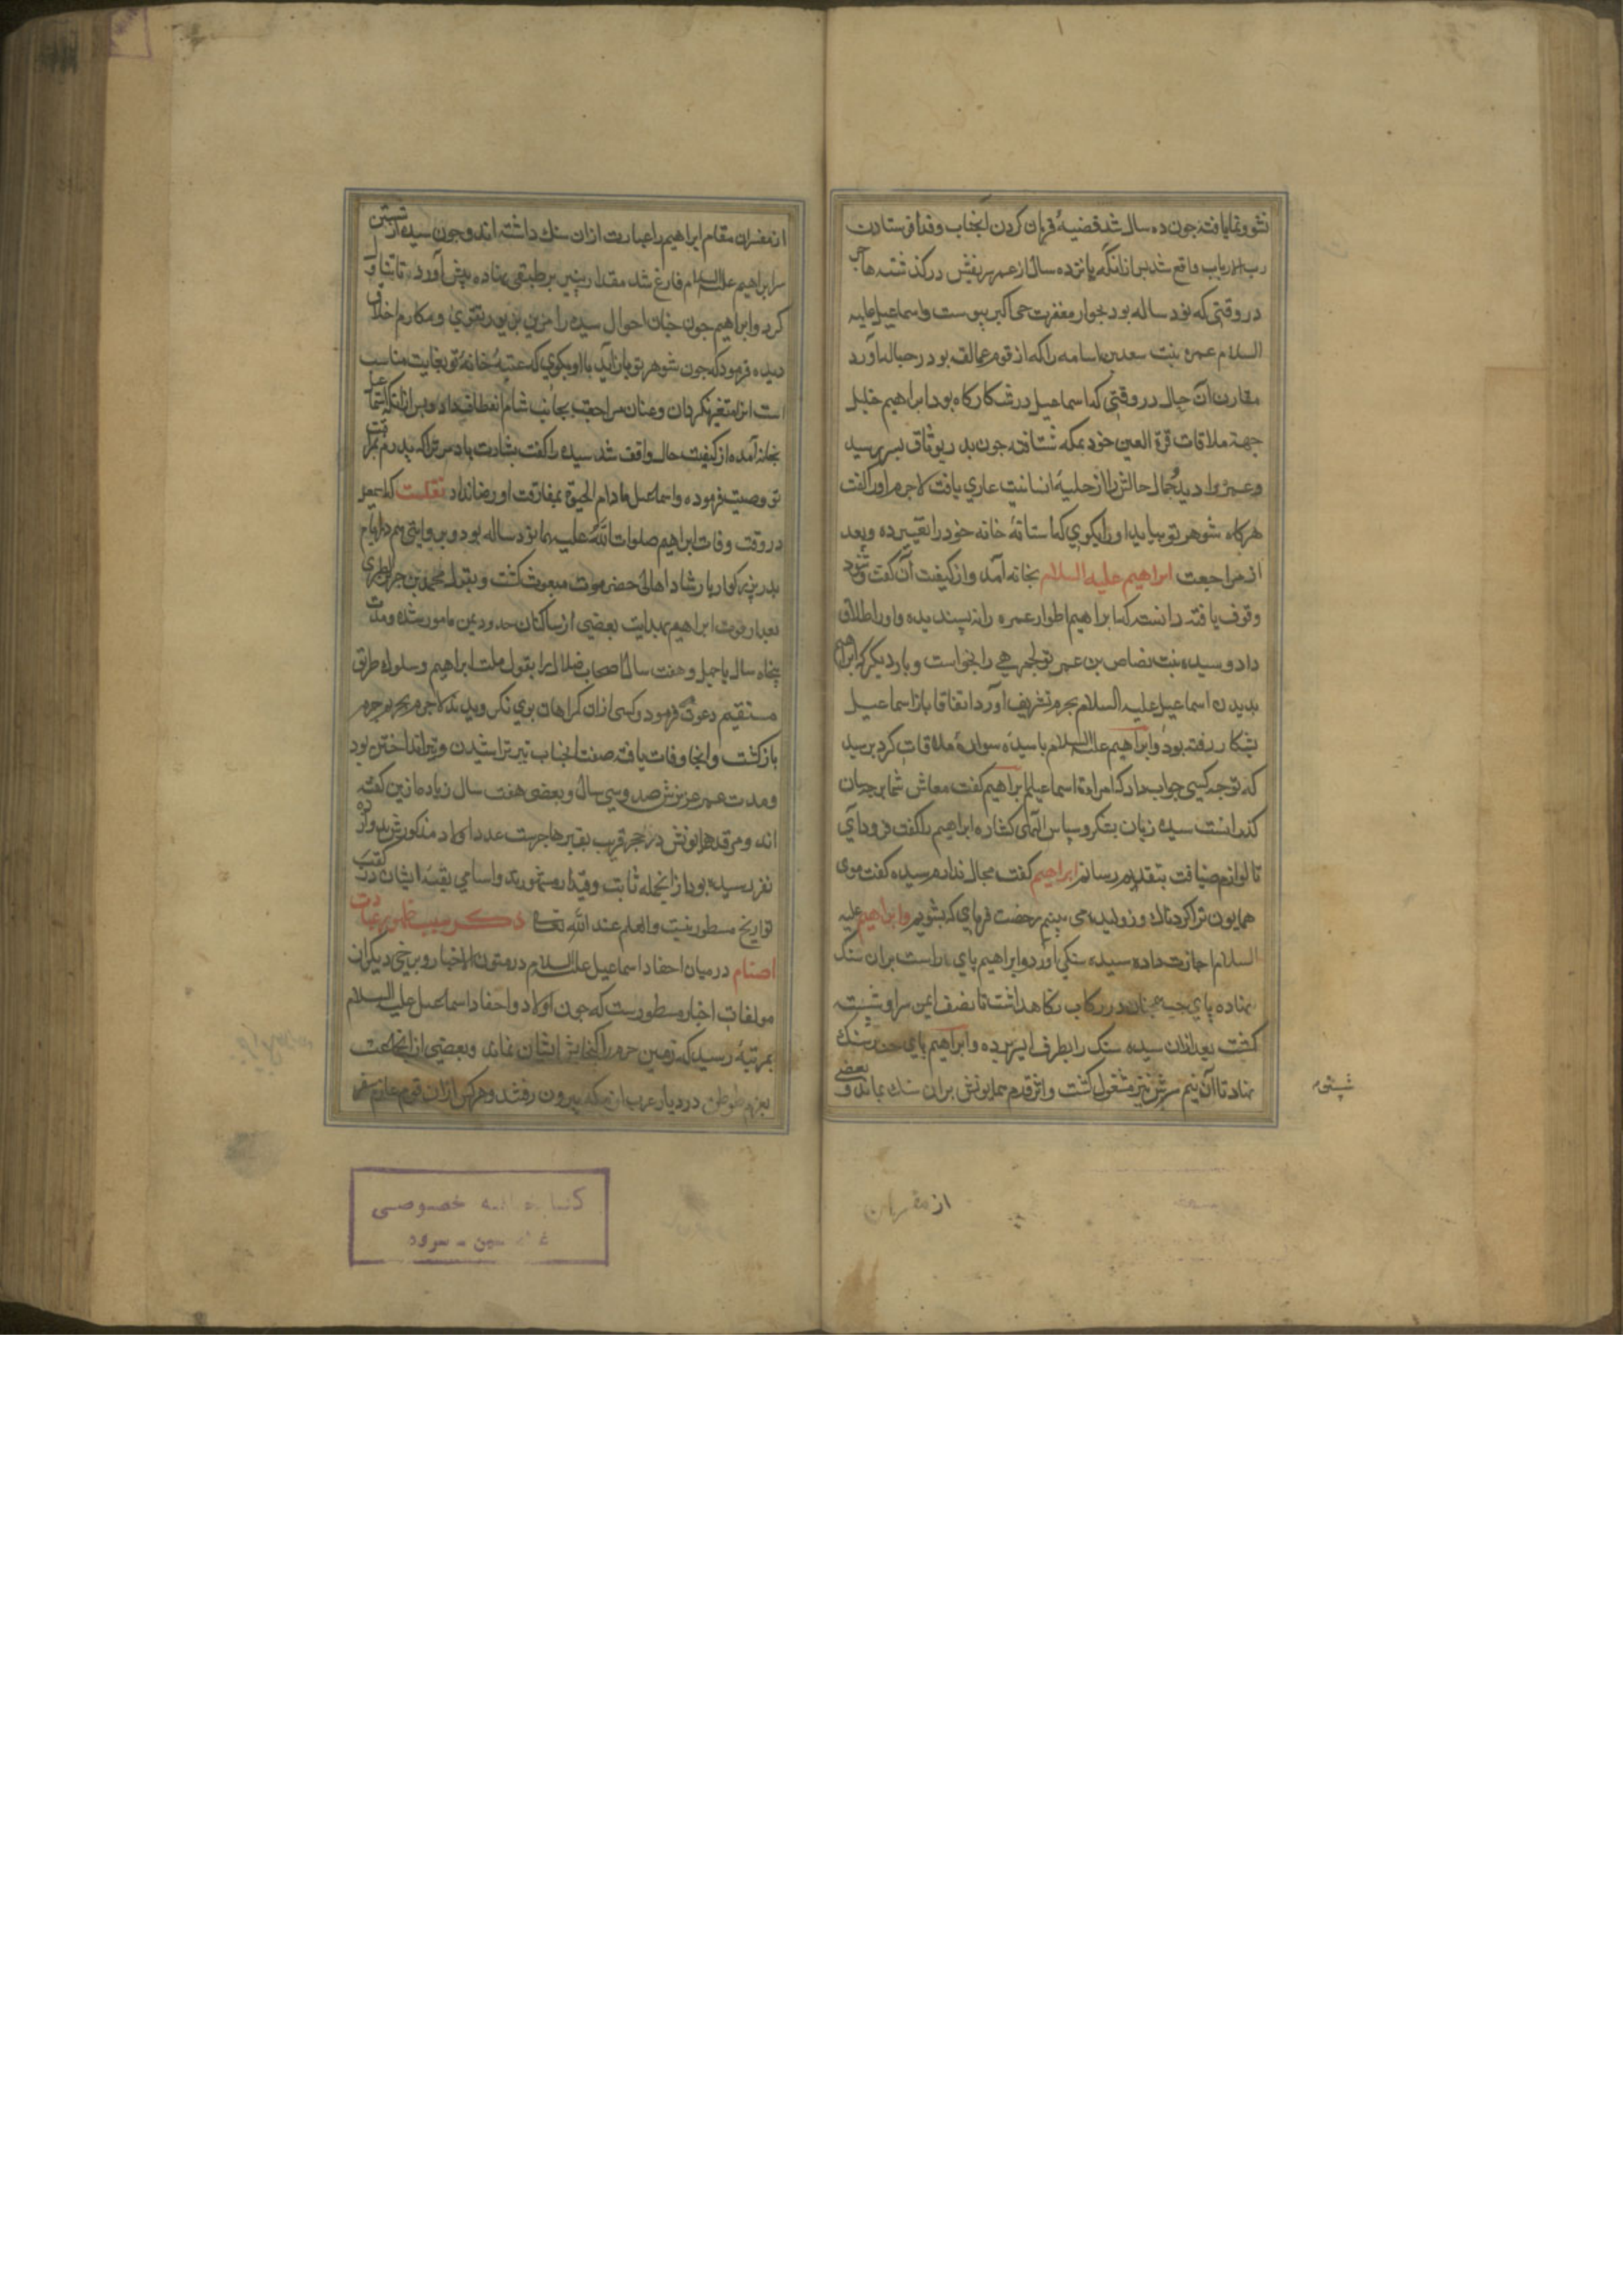 نشو و نما یافته جون ده سال شد قضیهٔ قربان کردن آنجناب و فدا فرستادن
رب الارباب واقع شد بس ازانکه بانزده سال از عمر شریفش در کذشته هاجر
در وقتی که نود ساله بود بجوار مغفرت حی اکبر پیوست و اسماعیل علیه
السلام عمره بنت سعد بن اسامه را که از قوم عمالقه بود در حباله آورد
مقارن آن حال در وقتی که اسماعیل در شکارکاه بود ابراهیم خلیل
جهة ملاقات قرة العین خود بمکه شتافته جون بدر یوثاق بسر رسید
و عمره را دید جمال حالش را از حلیهٔ انسانیت عاری یافت لاجرم او را کفت
هرکاه شوهر تو بیاید او را بکوی که استانهٔ خانه خود را تغییر ده و بعد
از مراجعت ابراهیم علیه السلام بخانه آمد و از کیفیت آن کفت و شنود
وقوف یافته دانست که ابراهیم اطوار عمره را نه پسندیده و او را طلاق
داد و سیده بنت مضاض بن عمرو جرهمی را بخواست و بار دیکر که ابراهیم
بدیدن اسماعیل علیه السلام بحرم تشریف آورد اتفاقا باز اسماعیل
بشکار رفته بود و ابراهیم علیه السلام با سیده سواره ملاقات کرد برسید
که تو جه کسی جواب داد که امراة اسماعیلم ابراهیم کفت معاش شما بر جسان
کذرانست سیده زبان بشکر و سپاس الهی کشاده ابراهیم را کفت فرود آی
تا لوازم ضیافت بتقدیم رسانم ابراهیم کفت مجال ندارم سیده کفت موی
همایون ترا کردناک و ژولیده می بینم رخصت فرمای که بشویم و ابراهیم علیه
السلام اجازت داده سیده سنکی آورد و ابراهیم پای راست بران سنک
نهاده پای جب همجنان در رکاب نکاهداشت تا نصف ایمن سر او شسته
کشت بعد ازان سیده سنک را بطرف ایسر برده و ابراهیم پای جب بر سنک
نهاد تا آن نیم سرش نیز مغسول کشت و اثر قدم همایونش بران سنک بماند و بعضی
شسته
از مفسران
از مفسران مقام ابراهیم را عبارت ازان سنک داشته اند و جون سیده از شستن
سر ابراهیم علیه السلام فارغ شد مقداری پنیر بر طبقی نهاده پیش آورد تا تناول
کرد و ابراهیم جون جنان احوال سیده را مزین بزیور تقوی و مکارم اخلاق
دیده فرمود که جون شوهر تو باز آید با او بکوی که عتبهٔ خانهٔ تو بغایت مناسب
است انرا متغیر نکردان و عنان مراجعت بجانب شام انعطاف داد و بس ازانکه اسماعیل
بخانه آمده از کیفیت حال واقف شد سیده را کفت بشارت باد مر ترا که پدرم بمراقبت
تو وصیت فرموده و اسماعیل مادام الحیوة بمفارقت او رضا نداد نقلست که اسمعیل
در وقت وفات ابراهیم صلوات الله علیهما نود ساله بود و بروایتی هم در ایام
پدر بزرکوار بارشاد اهالی حضرموت مبعوث کشت و بقول محمد بن جریر الطبری
بعد از فوت ابراهیم بهدایت بعضی از ساکنان حدود یمن مامور شده و مدت
پنجاه سال یا جهل و هفت سال اصحاب ضلال را بقبول ملت ابراهیم و سلوک طریق
مستقیم دعوت فرمود و کسی ازان کمراهان بوی نکرویدند لاجرم بحریم حرم
بازکشت و انجا وفات یافت صنعت انجناب تیر تراشیدن و تیر انداختن بود
و مدت عمر عزیزش صد و سی سال و بعضی هفت سال زیاده ازین کفته
اند و مرقد همایونش در حجر قریب بقبر هاجرست عدد اولاد مذکورش بدوازده
نفر رسیده بود ازانجمله ثابت و قیدار مشهورند و اسامی بقیهٔ ایشان در کتب
تواریخ مسطور نیست والعلم عند الله تعالی ذکر سبب ظهور عبادت
اصنام در میان احفاد اسماعیل علیه السلام در متون الاخبار و برخی دیکر از
مولفات اخبار مسطورست که جون اولاد و احفاد اسماعیل علیه السلام
بمرتبهٔ رسید که زمین حرم را کنجایش ایشان نماند و بعضی ازانجماعت
بعزم توطن در دیار عرب از مکه بیرون رفتند و هرکس ازان قوم عازم سفر
کتابخانه خصوصی
سرود